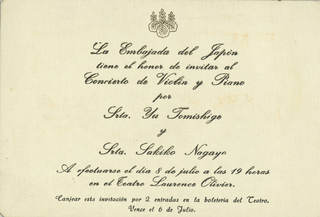 La Embajada del Japón
tiene el honor de invitar al
Concierto de Violín y Piano
por
Srta. Yu Tomishige
y
Srta. Sakiko Nagayo
A efectuarse el día 8 de julio a las 19 horas
en el Teatro Laurence Olivier.
Canjear esta invitación por 2 entradas en la boletería del Teatro.
Vence el 6 de Julio.